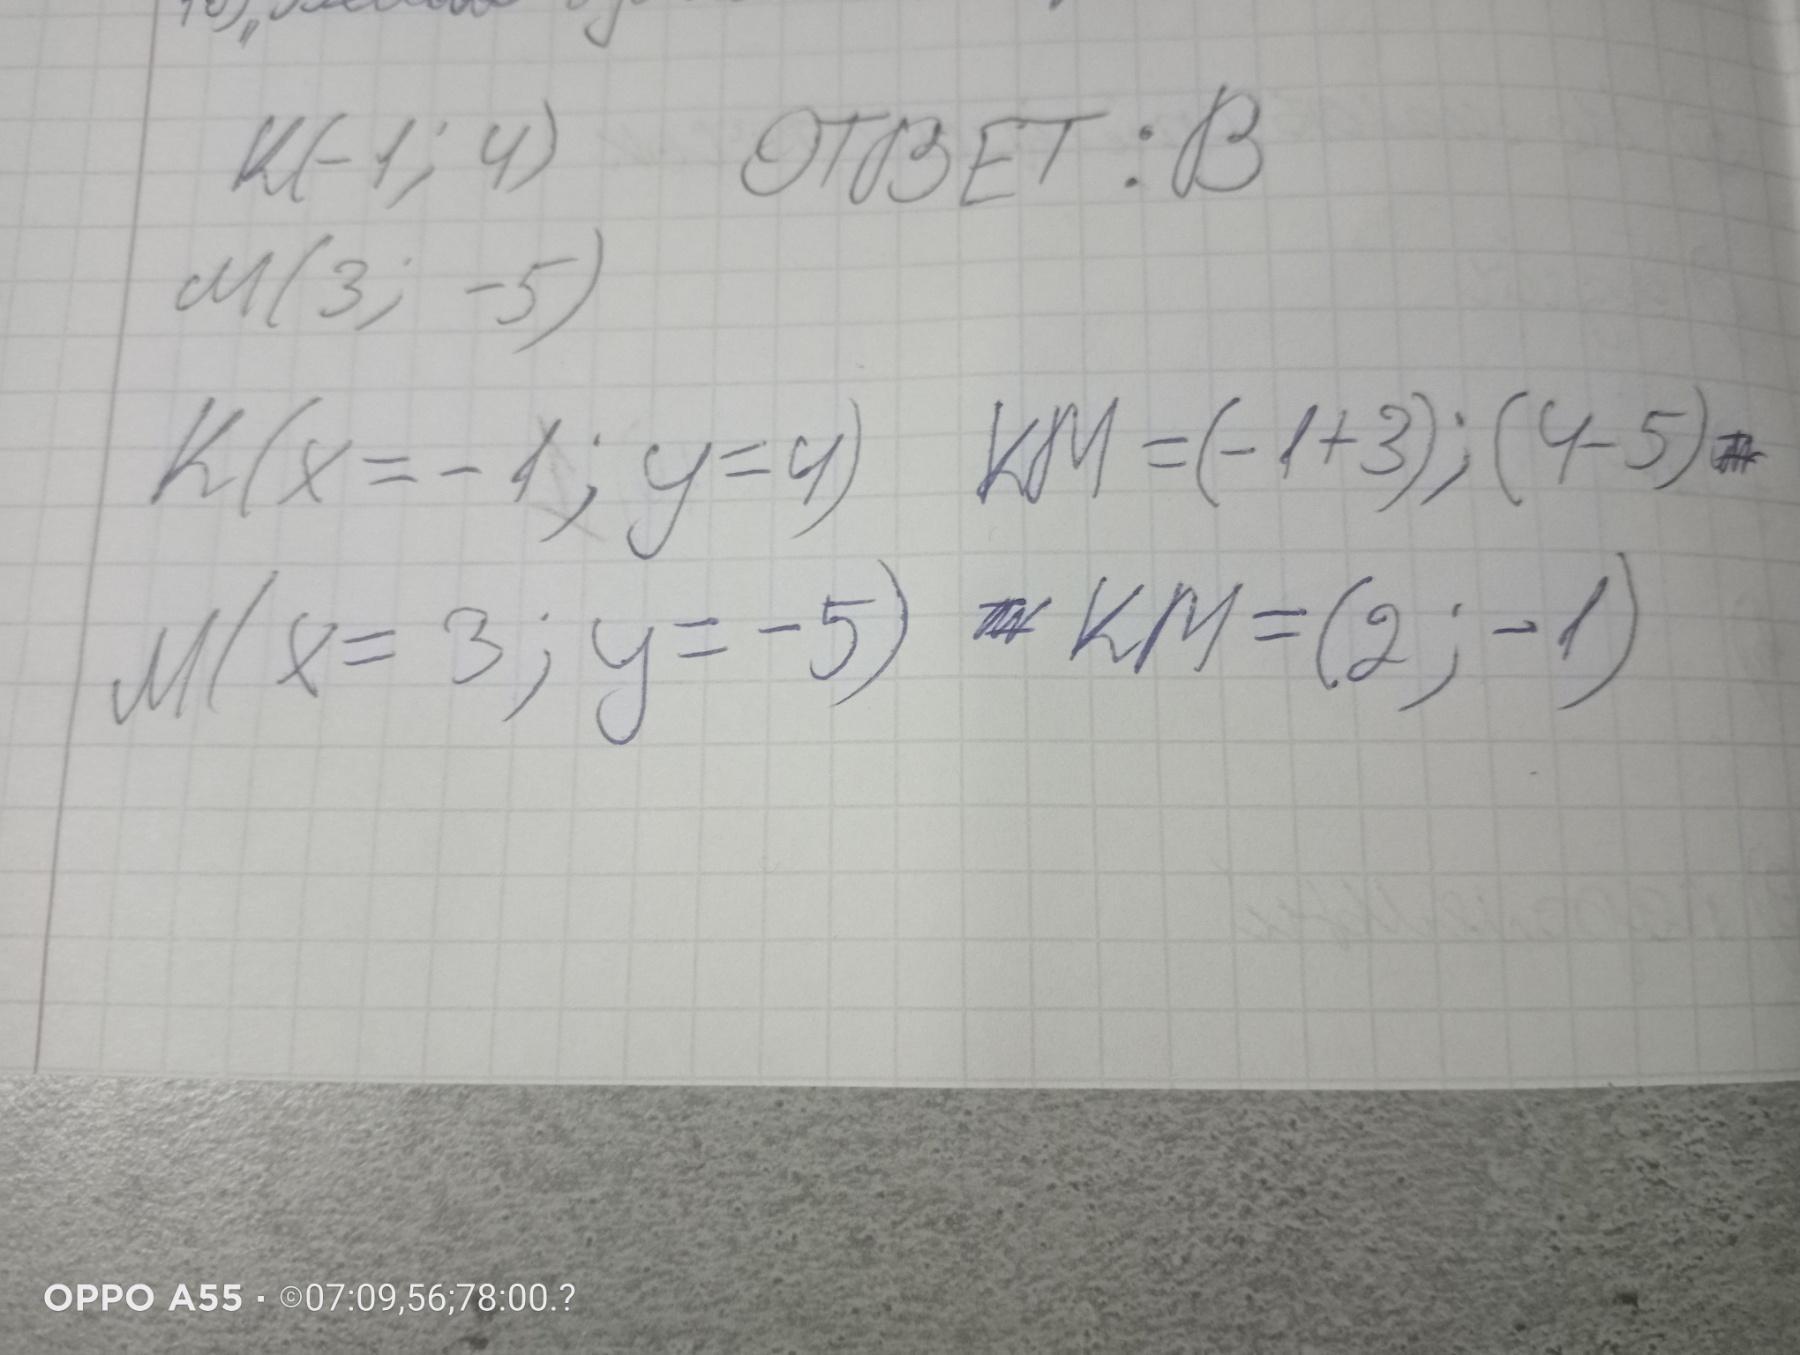 К(-1; 4) ОТВЕТ: В
М(3; -5)
К(x=-1; y=4) КМ=(-1+3); (4-5)
М(x=3; y=-5) КМ=(2; -1)
OPPO A55 · ©07:09,56;78:00.?